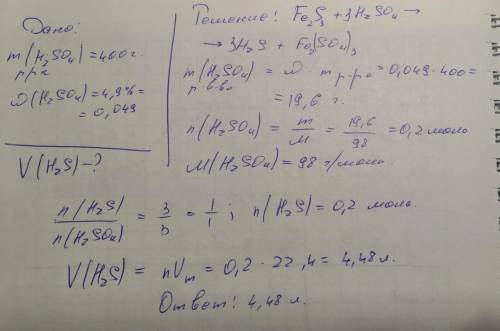 Дано:
m(H₂SO₄) = 400 г.
р-ра
ω(H₂SO₄) = 4,9% =
= 0,049
V(H₂S) – ?
Решение: Fe₂S₃ + 3H₂SO₄ →
→ 3H₂S + Fe₂(SO₄)₃
m(H₂SO₄) = ω · m р-ра = 0,049 · 400 =
р. в-ва
= 19,6 г.
n(H₂SO₄) = m/M = 19,6/98 = 0,2 моль
M(H₂SO₄) = 98 г/моль.
n(H₂S)/n(H₂SO₄) = 3/3 = 1/1 ; n(H₂S) = 0,2 моль.
V(H₂S) = nVm = 0,2 · 22,4 = 4,48 л.
Ответ: 4,48 л.